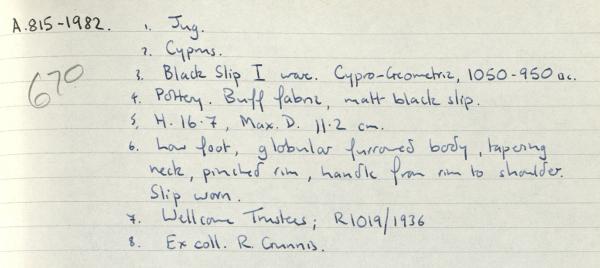 A.815-1982. 1. Jug.
2. Cyprus.
670
3. Black Slip I ware. Cypro-Geometric, 1050-950 BC.
4. Pottery. Buff fabric, matt black slip.
5, H. 16·7, Max. D. 11·2 cm.
6. Low foot, globular furrowed body, tapering
neck, pinched rim, handle from rim to shoulder.
Slip worn.
7. Wellcome Trustees; R1019/1936
8. Ex coll. R. Gunnis.